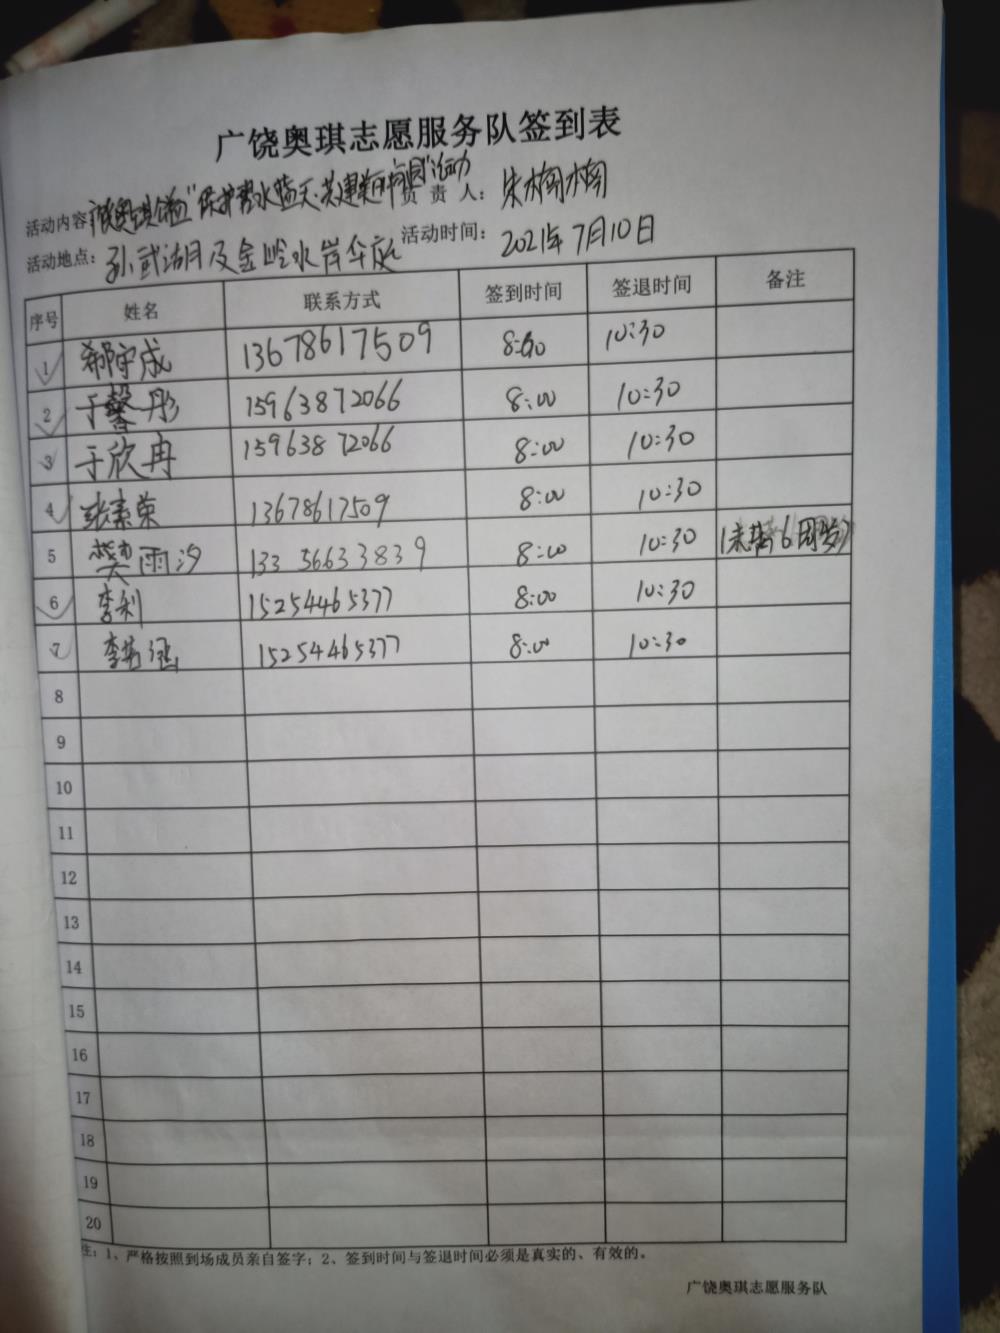 广饶奥琪志愿服务队签到表
活动内容: "保护碧水蓝天·共建美丽家园"活动 负责人: 宋楠楠
活动地点: 孙武湖及金岭水岸华庭 活动时间: 2021年7月10日
序号 姓名 联系方式 签到时间 签退时间 备注
1 郗守成 13678617509 8:00 10:30
2 于馨彤 15963872066 8:00 10:30
3 于欣冉 15963872066 8:00 10:30
4 张素荣 13678617509 8:00 10:30
5 樊雨汐 13356633839 8:00 10:30 (未满6周岁)
6 李利 15254465377 8:00 10:30
7 李若涵 15254465377 8:00 10:30
8
9
10
11
12
13
14
15
16
17
18
19
20
注: 1、严格按照到场成员亲自签字; 2、签到时间与签退时间必须是真实的、有效的。
广饶奥琪志愿服务队